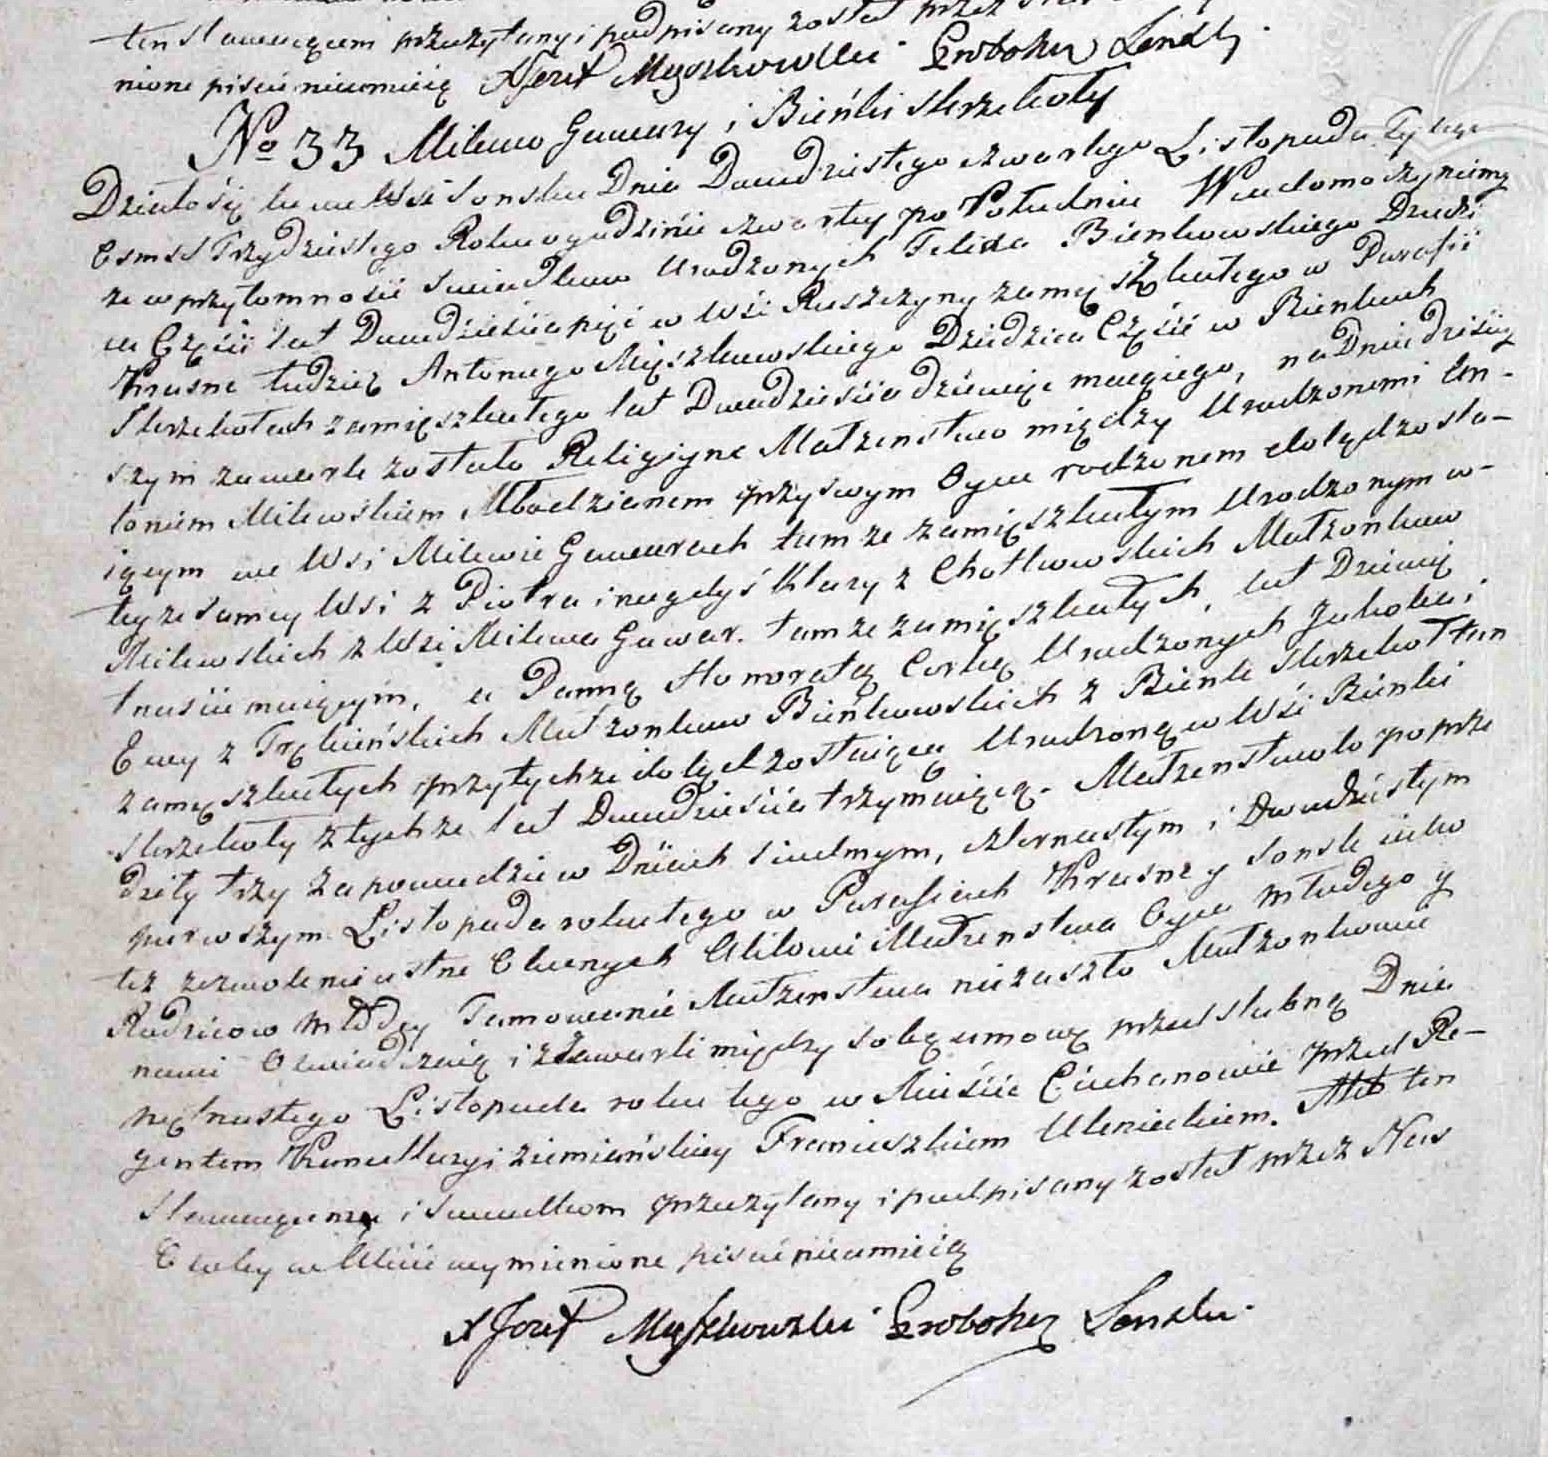 ten stawaiącem przeczytany i podpisany został przez
nione pisać nieumieią XJozef Myszkowski Proboszcz Sonsk
No 33 Milewo Gawary i Bieńki Skrzekoty
Działo się we Wsi Sonsku Dnia Dwudziestego czwartego Listopada Tysiąc
Osmset Trzydziestego Roku o godzinie czwartey po Południu Wiadomo czyniemy
ze w przytomności swiadkow Urodzonych Felixa Bienkowskiego Dziedzi
ca Części lat Dwadzieścia pięć w Wsi Ruszczyny zamięszkałego w Parafii
Krasne tudzież Antoniego Mięszkowskiego Dziedzica Części w Bienkach
Skrzekotach zamięszkałego lat Dwadzieścia dziewięć maiącego, na Dniu dzisiey
szym zawarte zostało Religiyne Małzenstwo między Urodzonemi An-
toniem Milewskiem Młodzianem przy swym Oycu rodzonem dotąd zosta-
iącym we Wsi Milewie Gawarach tamze zamięszkałym Urodzonym w
teyze samey Wsi z Piotra i niegdyś Klary z Chotkowskich Małzonkow
Milewskich z Wsi Milewa Gawar. tamze zamięszkałych, lat Dziewię
tnaście maiącym, a Panną Honoratą Corką Urodzonych Jakoba i
Ewy z Trębińskich Małzonkow Bieńkowskich z Bienk Skrzekot tam
zamęszkałych przy tychze dotąd zostaiącą Urodzoną w Wśi Bieńki
Skrzekoty z tychze lat Dwadzieścia trzy maiącą. Małzenstwo to poprze
dziły trzy zapowiedzie w Dniach siudmym, czternastym i Dwudziestym
pierwszym Listopada roku tego w Parafiach Krasne y Sonsk iako
też zezwolenie ustne Obecnych Aktowi Małzenstwa Oyca młodego y
Rodzicow młodey Tamowanie Małzenstwa nie zaszło Małzonkowie
nowi Oswiadczaią iż zawarli między sobą umowę przedslubną Dnia
piętnastego Listopada roku tego w Mieście Ciechanowie przed Re-
gentem Kancellaryi ziemiańskiey Franciszkiem Ulenieckiem. Akt ten
Stawaiącem i Swiadkom przeczytany i podpisany został przez Nas
Osoby w Akcie wymienione pisać nieumieią
XJozef Myszkowski Proboszcz Sonski